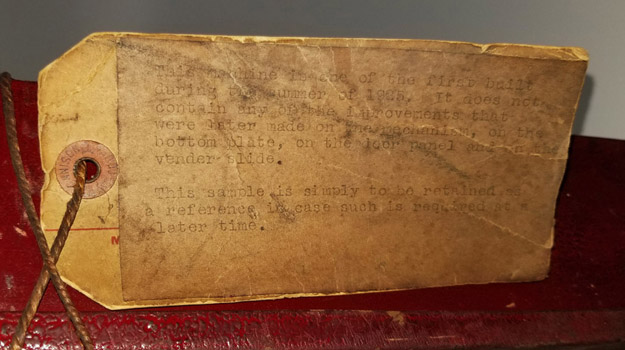 This machine is one of the first built
during the summer of 1925. It does not
contain any of the improvements that
were later made on the mechanism, on the
bottom plate, on the door panel and on the
vender slide.
This sample is simply to be retained
a reference in case such is required at a
later time.
M